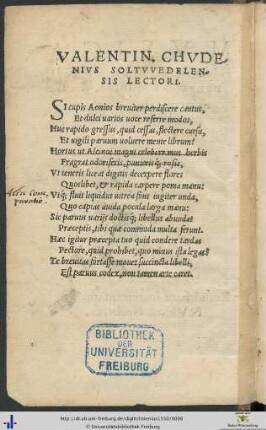 VALENTIN. CHVDE
NIVS SOLTVVEDELEN-
SIS LECTORI.
SI cupis Aonios breuiter perdiscere cantus,
Et dulci varios uoce referre modos,
Huc rapido gressus, quid cessas, flectere cursu,
Et uigili paruum uoluere mente librum?
Hortus ut Alcinoi magni celeberrimus herbis
Fragrat odoriferis, puniceisq; rosis,
Vt teneris liceat digitis decerpere flores
Quoslibet, & rapida carpere poma manu:
Vtq; fluit liquidus uitrea sine iugiter unda,
Quo capias auida pocula larga manu:
Sic paruus uarijs doctisq; libellus abundat
Præceptis, tibi quæ commoda multa ferunt.
Hæc igitur præcepta tuo quid condere tardas
Pectore, quid prohibet, quo minus ista legas?
Te breuitas fortasse mouet succincta libelli,
Est paruus codex, non tamen arte caret.
BIBLIOTHEK
DER
UNIVERSITÄT
FREIBURG
© Universitätsbibliothek Freiburg